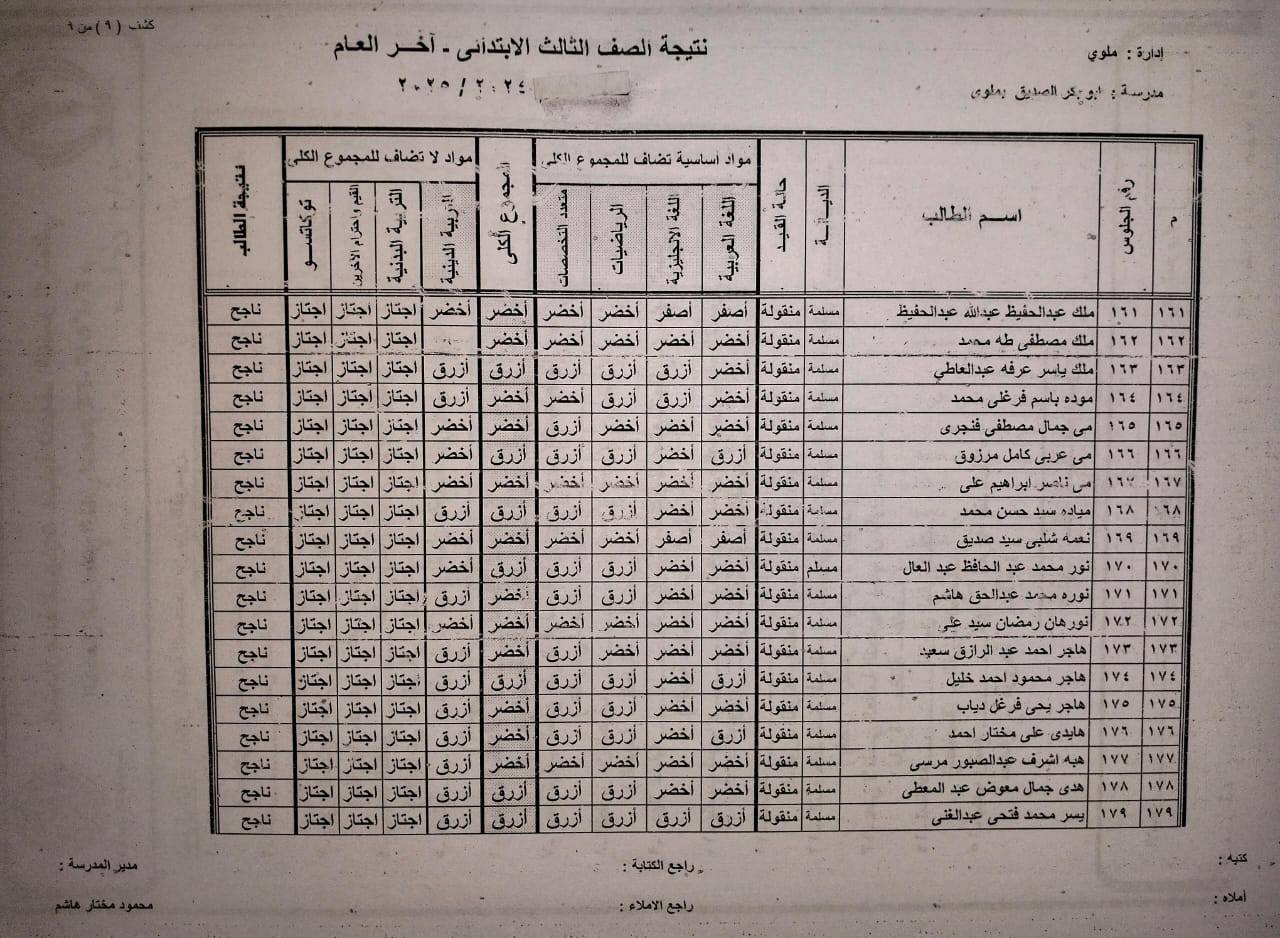 كشف ( ٩ ) من ٩
إدارة : ملوي
نتيجة الصف الثالث الابتدائى - آخر العام
مدرسة : ابو بكر الصديق بملوى
٢٠٢٤ / ٢٠٢٥
م رقم الجلوس اسم الطالب الديانة حالة القيد مواد أساسية تضاف للمجموع الكلى المجموع الكلى مواد لا تضاف للمجموع الكلى نتيجة الطالب
اللغة العربية اللغة الانجليزية الرياضيات متعدد التخصصات التربية الدينية التربية البدنية القيم واحترام الآخرين توكاتسو
١٦١ ١٦١ ملك عبدالحفيظ عبدالله عبدالحفيظ مسلمة منقولة أصفر أصفر أخضر أخضر أخضر أخضر اجتاز اجتاز اجتاز ناجح
١٦٢ ١٦٢ ملك مصطفى طه محمد مسلمة منقولة أخضر أخضر أخضر أخضر أخضر اجتاز اجتاز اجتاز ناجح
١٦٣ ١٦٣ ملك ياسر عرفه عبدالعاطي مسلمة منقولة أخضر أزرق أزرق أزرق أزرق أزرق اجتاز اجتاز اجتاز ناجح
١٦٤ ١٦٤ موده باسم فرغلى محمد مسلمة منقولة أخضر أزرق أزرق أخضر أخضر أزرق اجتاز اجتاز اجتاز ناجح
١٦٥ ١٦٥ مى جمال مصطفى فنجرى مسلمة منقولة أخضر أخضر أخضر أزرق أخضر أخضر اجتاز اجتاز اجتاز ناجح
١٦٦ ١٦٦ مى عربى كامل مرزوق مسلمة منقولة أزرق أخضر أزرق أزرق أزرق أخضر اجتاز اجتاز اجتاز ناجح
١٦٧ ١٦٧ مى ناصر ابراهيم على مسلمة منقولة أخضر أخضر أخضر أخضر أخضر أخضر اجتاز اجتاز اجتاز ناجح
١٦٨ ١٦٨ مياده سيد حسن محمد مسلمة منقولة أخضر أخضر أزرق أزرق أزرق أزرق اجتاز اجتاز اجتاز ناجح
١٦٩ ١٦٩ نعمه شلبى سيد صديق مسلمة منقولة أصفر أصفر أخضر أخضر أخضر أخضر اجتاز اجتاز اجتاز ناجح
١٧٠ ١٧٠ نور محمد عبد الحافظ عبد العال مسلم منقولة أخضر أخضر أزرق أزرق أزرق أخضر اجتاز اجتاز اجتاز ناجح
١٧١ ١٧١ نوره محمد عبدالحق هاشم مسلمة منقولة أخضر أخضر أخضر أزرق أخضر أزرق اجتاز اجتاز اجتاز ناجح
١٧٢ ١٧٢ نورهان رمضان سيد على مسلمة منقولة أخضر أخضر أخضر أخضر أخضر أخضر اجتاز اجتاز اجتاز ناجح
١٧٣ ١٧٣ هاجر احمد عبد الرازق سعيد مسلمة منقولة أخضر أخضر أخضر أزرق أخضر أزرق اجتاز اجتاز اجتاز ناجح
١٧٤ ١٧٤ هاجر محمود احمد خليل مسلمة منقولة أزرق أخضر أزرق أزرق أزرق أزرق اجتاز اجتاز اجتاز ناجح
١٧٥ ١٧٥ هاجر يحى فرغل دياب مسلمة منقولة أخضر أخضر أزرق أزرق أخضر أزرق اجتاز اجتاز اجتاز ناجح
١٧٦ ١٧٦ هايدى على مختار احمد مسلمة منقولة أزرق أخضر أزرق أزرق أزرق أزرق اجتاز اجتاز اجتاز ناجح
١٧٧ ١٧٧ هبه اشرف عبدالصبور مرسى مسلمة منقولة أخضر أخضر أخضر أخضر أخضر أزرق اجتاز اجتاز اجتاز ناجح
١٧٨ ١٧٨ هدى جمال معوض عبد المعطى مسلمة منقولة أخضر أخضر أزرق أزرق أزرق أزرق اجتاز اجتاز اجتاز ناجح
١٧٩ ١٧٩ يسر محمد فتحى عبدالغنى مسلمة منقولة أزرق أزرق أزرق أزرق أزرق أزرق اجتاز اجتاز اجتاز ناجح
كتبه : راجع الكتابة : مدير المدرسة :
أملاه : راجع الاملاء : محمود مختار هاشم